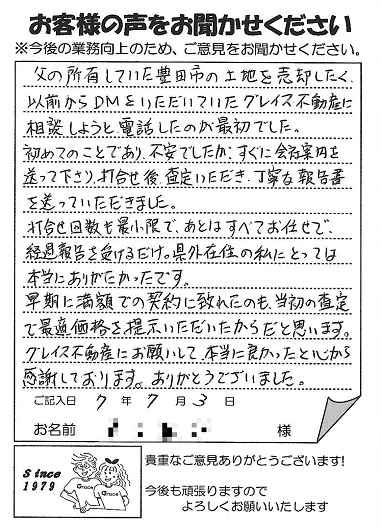 お客様の声をお聞かせください
※今後の業務向上のため、ご意見をお聞かせください。
父の所有していた豊田市の土地を売却したく、
以前からDMをいただいていたグレイス不動産に
相談しようと電話したのが最初でした。
初めてのことであり、不安でしたが、すぐに会社案内を
送って下さり、打合せ後、査定いただき、丁寧な報告書
を送っていただきました。
打合せ回数も最小限で、あとはすべてお任せで、
経過報告を受けるだけ。県外在住の私にとっては
本当にありがたかったです。
早期に満額での契約に致れたのも、当初の査定
で最適価格を提示いただいたからだと思います。
グレイス不動産にお願いして、本当に良かったと心から
感謝しております。ありがとうございました。
ご記入日 7 年 7 月 3 日
お名前 様
Since
1979
Grace
Grace
貴重なご意見ありがとうございます!
今後も頑張りますので
よろしくお願いいたします